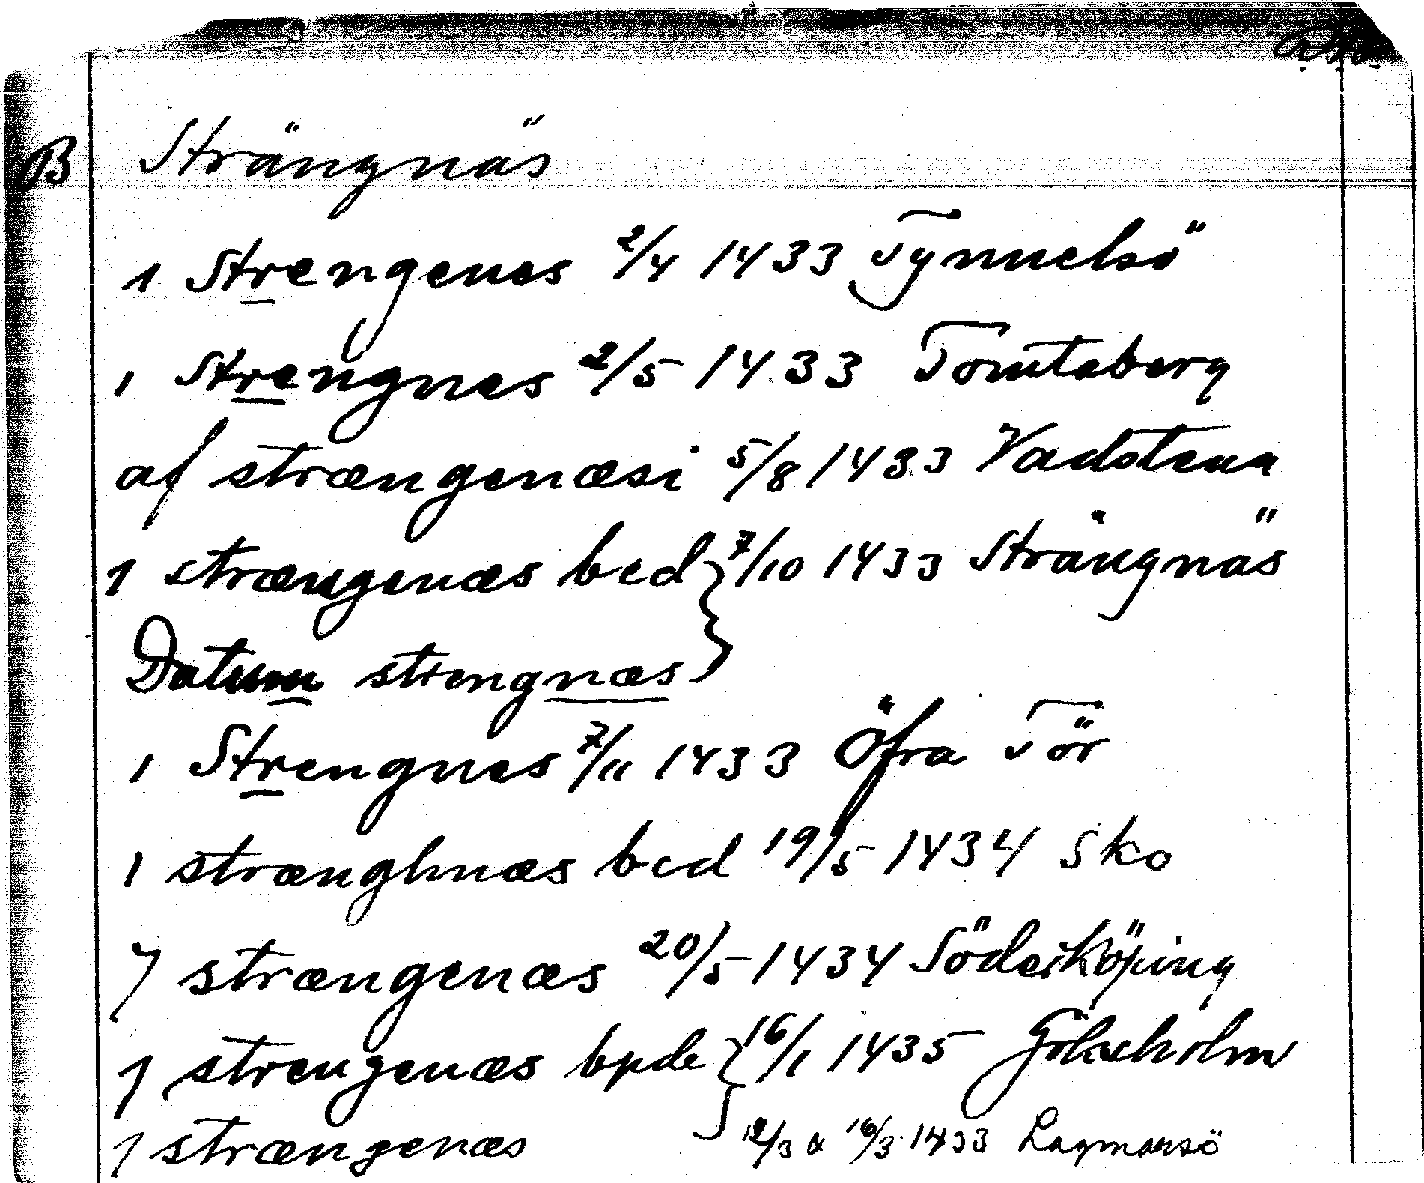 B Strängnäs
1 Strengenes 2/4 1433 Tynnelsö
1 Strengnes 2/5 1433 Tomtaberg
af strængenæsi 5/8 1433 Vadstena
1 strængenæs bcd } 7/10 1433 Strängnäs
Datum strengnæs
1 Strengnes 7/11 1433 Öfra Tör
1 strænghnæs bcd 19/5 1434 Sko
J strængenæs 20/5 1434 Söderköping
J strengenæs bpde } 16/1 1435 Göksholm
J strængenæs 12/3 & 16/3 1433 Lagmansö